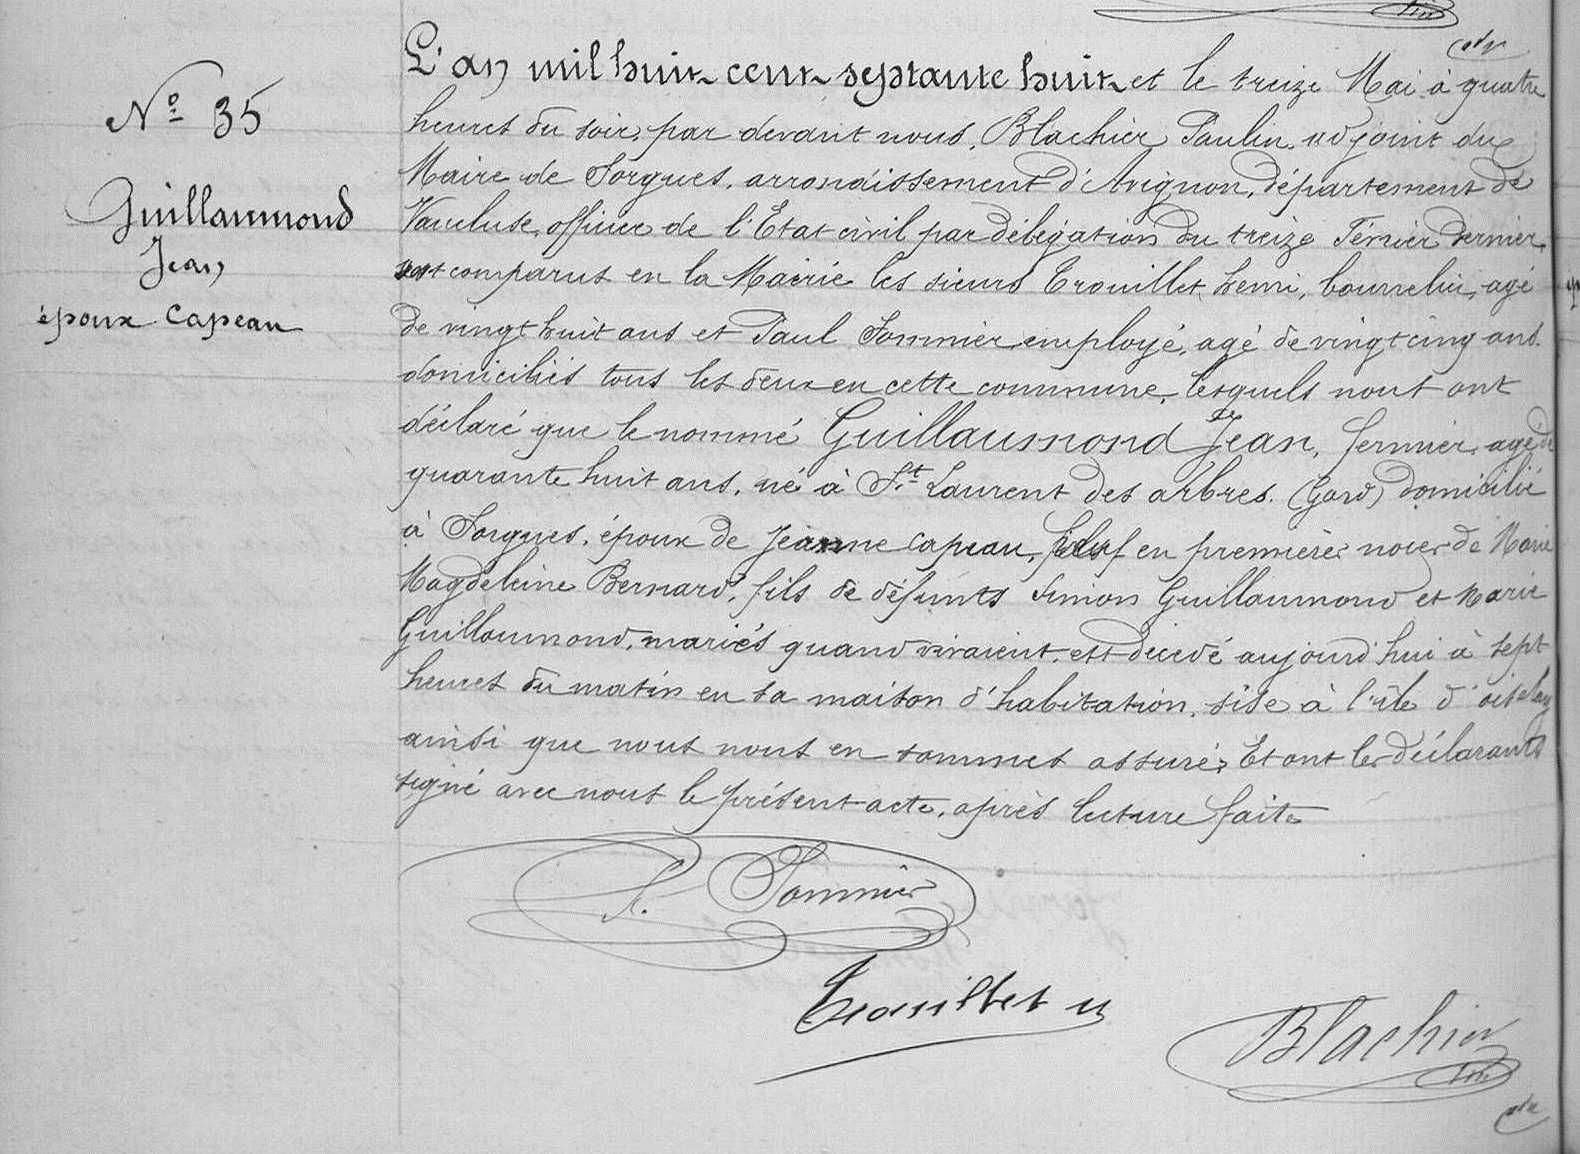 N° 35
Guillaumond
Jean
époux Capeau
L'an mil huit cent septante huit et le treize Mai à quatre
heures du soir, par devant nous, Blachier Paulin adjoint du
Maire de Sorgues, arrondissement d'Avignon, département de
Vaucluse, officier de l'Etat civil par délégation du treize Février dernier,
sont comparus en la Mairie les sieurs Trouillet, Remi, bourrelier, agé
de vingt huit ans et Paul Sommier employé, agé de vingt cinq ans
domiciliés tous les deux en cette commune, lesquels nous ont
déclaré que le nommé Guillaumond Jean, fermier, agé de
quarante huit ans, né à St Laurent des arbres. (Gard) domicilié
à Sorgues, époux de Jeanne Capeau, en premières noces de Marie
Magdeleine Bernard, fils de défunts Simon Guillaumond et Marie
Guillaumond, mariés quand vivaient, est décédé aujourd'hui à sept
heures du matin en sa maison d'habitation, sise à l'île d'oiselay
ainsi que nous nous en sommes assuré, Et ont les déclarants
signé avec nous le présent acte, après lecture faite
P. Sommier
Trouillet
Blachier